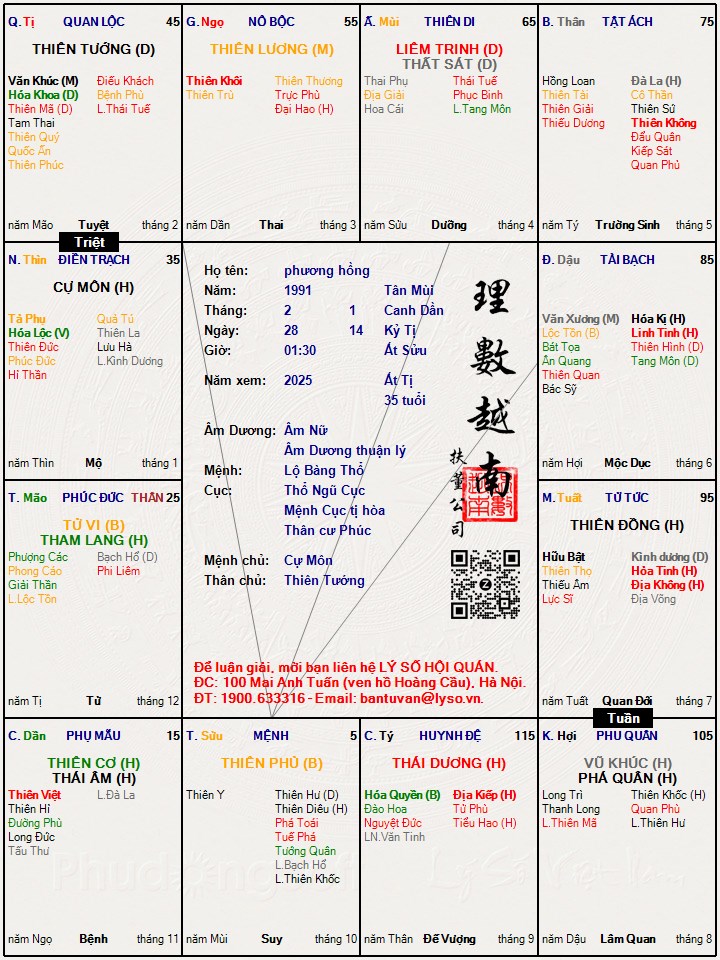 Q. Tị QUAN LỘC 45
THIÊN TƯỚNG (D)
Văn Khúc (M) Điếu Khách
Hóa Khoa (D) Bệnh Phù
Thiên Mã (D) L.Thái Tuế
Tam Thai
Thiên Quý
Quốc Ấn
Thiên Phúc
năm Mão Tuyệt tháng 2
G. Ngọ NÔ BỘC 55
THIÊN LƯƠNG (M)
Thiên Khôi Thiên Thương
Thiên Trù Trực Phù
Đại Hao (H)
năm Dần Thai tháng 3
Ấ. Mùi THIÊN DI 65
LIÊM TRINH (D)
THẤT SÁT (D)
Thai Phụ Thái Tuế
Địa Giải Phục Binh
Hoa Cái L.Tang Môn
năm Sửu Dưỡng tháng 4
B. Thân TẬT ÁCH 75
Hồng Loan Đà La (H)
Thiên Tài Cô Thần
Thiên Giải Thiên Sứ
Thiếu Dương Thiên Không
Đẩu Quân
Kiếp Sát
Quan Phủ
năm Tý Trường Sinh tháng 5
Triệt
N. Thìn ĐIỀN TRẠCH 35
CỰ MÔN (H)
Tả Phụ Quả Tú
Hóa Lộc (V) Thiên La
Thiên Đức Lưu Hà
Phúc Đức L.Kình Dương
Hỉ Thần
năm Thìn Mộ tháng 1
Họ tên: phương hồng
Năm: 1991 Tân Mùi
Tháng: 2 1 Canh Dần
Ngày: 28 14 Kỷ Tị
Giờ: 01:30 Ất Sửu
Năm xem: 2025 Ất Tị
35 tuổi
Âm Dương: Âm Nữ
Âm Dương thuận lý
Mệnh: Lộ Bàng Thổ
Cục: Thổ Ngũ Cục
Mệnh Cục tị hòa
Thân cư Phúc
Mệnh chủ: Cự Môn
Thân chủ: Thiên Tướng
理數越南
扶董公司
Để luận giải, mời bạn liên hệ LÝ SỐ HỘI QUÁN.
ĐC: 100 Mai Anh Tuấn (ven hồ Hoàng Cầu), Hà Nội.
ĐT: 1900.633316 - Email: bantuvan@lyso.vn.
Đ. Dậu TÀI BẠCH 85
Văn Xương (M) Hóa Kị (H)
Lộc Tồn (B) Linh Tinh (H)
Bát Tọa Thiên Hình (D)
Ân Quang Tang Môn (D)
Thiên Quan
Bác Sỹ
năm Hợi Mộc Dục tháng 6
T. Mão PHÚC ĐỨC THÂN 25
TỬ VI (B)
THAM LANG (H)
Phượng Các Bạch Hổ (D)
Phong Cáo Phi Liêm
Giải Thần
L.Lộc Tồn
năm Tị Tử tháng 12
M. Tuất TỬ TỨC 95
THIÊN ĐỒNG (H)
Hữu Bật Kình dương (D)
Thiên Thọ Hỏa Tinh (H)
Thiếu Âm Địa Không (H)
Lực Sĩ Địa Võng
năm Tuất Quan Đới tháng 7
Tuần
C. Dần PHỤ MẪU 15
THIÊN CƠ (H)
THÁI ÂM (H)
Thiên Việt L.Đà La
Thiên Hỉ
Đường Phù
Long Đức
Tấu Thư
năm Ngọ Bệnh tháng 11
T. Sửu MỆNH 5
THIÊN PHỦ (B)
Thiên Y Thiên Hư (D)
Thiên Diêu (H)
Phá Toái
Tuế Phá
Tướng Quân
L.Bạch Hổ
L.Thiên Khốc
năm Mùi Suy tháng 10
C. Tý HUYNH ĐỆ 115
THÁI DƯƠNG (H)
Hóa Quyền (B) Địa Kiếp (H)
Đào Hoa Tử Phù
Nguyệt Đức Tiểu Hao (H)
LN.Văn Tinh
năm Thân Đế Vượng tháng 9
K. Hợi PHU QUÂN 105
VŨ KHÚC (H)
PHÁ QUÂN (H)
Long Trì Thiên Khốc (H)
Thanh Long Quan Phù
L.Thiên Mã L.Thiên Hư
năm Dậu Lâm Quan tháng 8